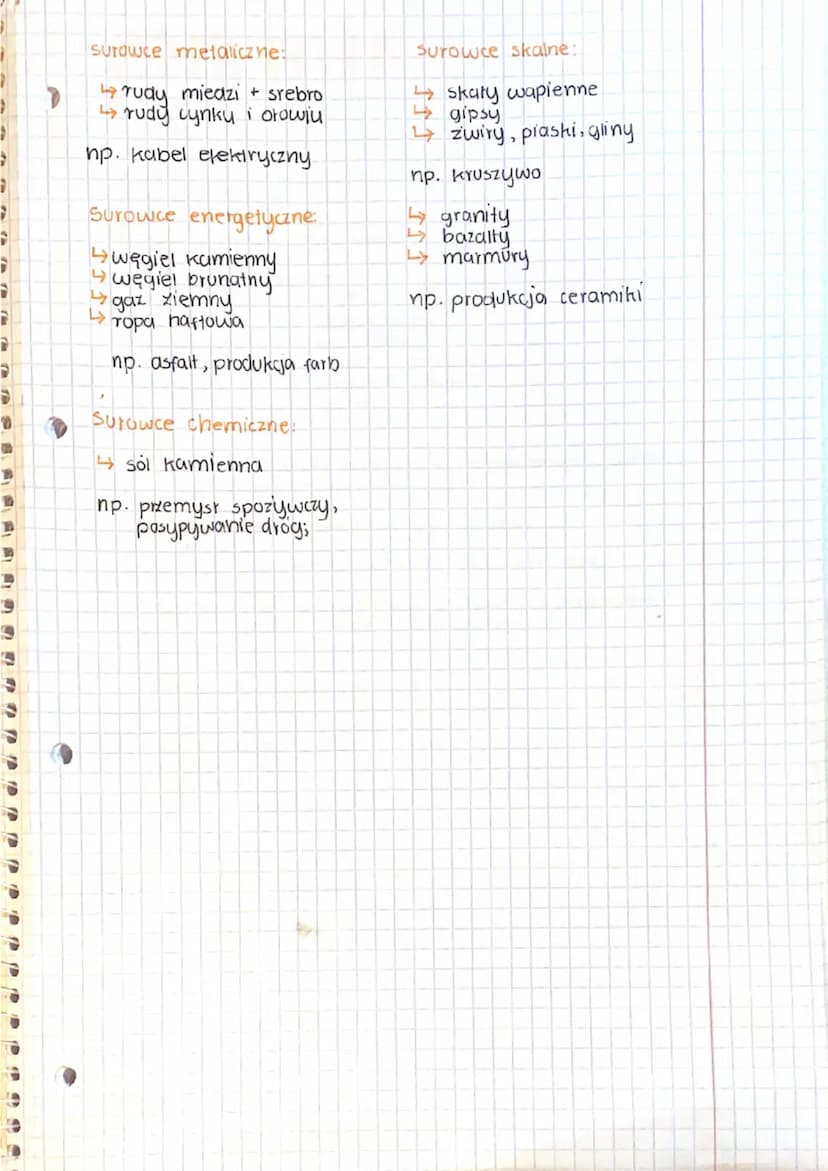 surowce metaliczne:
↳ rudy miedzi + srebro
↳ rudy cynku i ołowiu
np. kabel elektryczny
Surowce energetyczne:
↳ węgiel kamienny
↳ węgiel brunatny
↳ gaz ziemny
↳ ropa naftowa
np. asfalt, produkcja farb
Surowce chemiczne:
↳ sól kamienna
np. przemysł spożywczy,
posypywanie dróg;
Surowce skalne:
↳ skały wapienne
↳ gipsy
↳ żwiry, piaski, gliny
np. kruszywo
↳ granity
↳ bazalty
↳ marmury
np. produkcja ceramiki